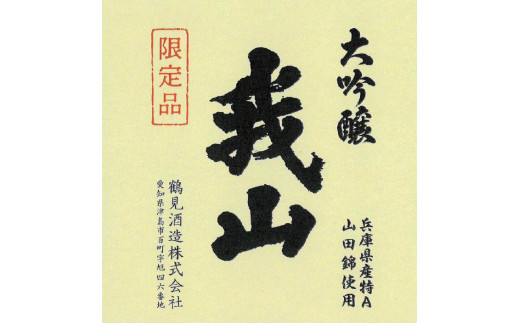 大吟醸
兵庫県産特A
山田錦使用
我山
限定品
鶴見酒造株式会社
愛知県津島市百町字旭四六番地